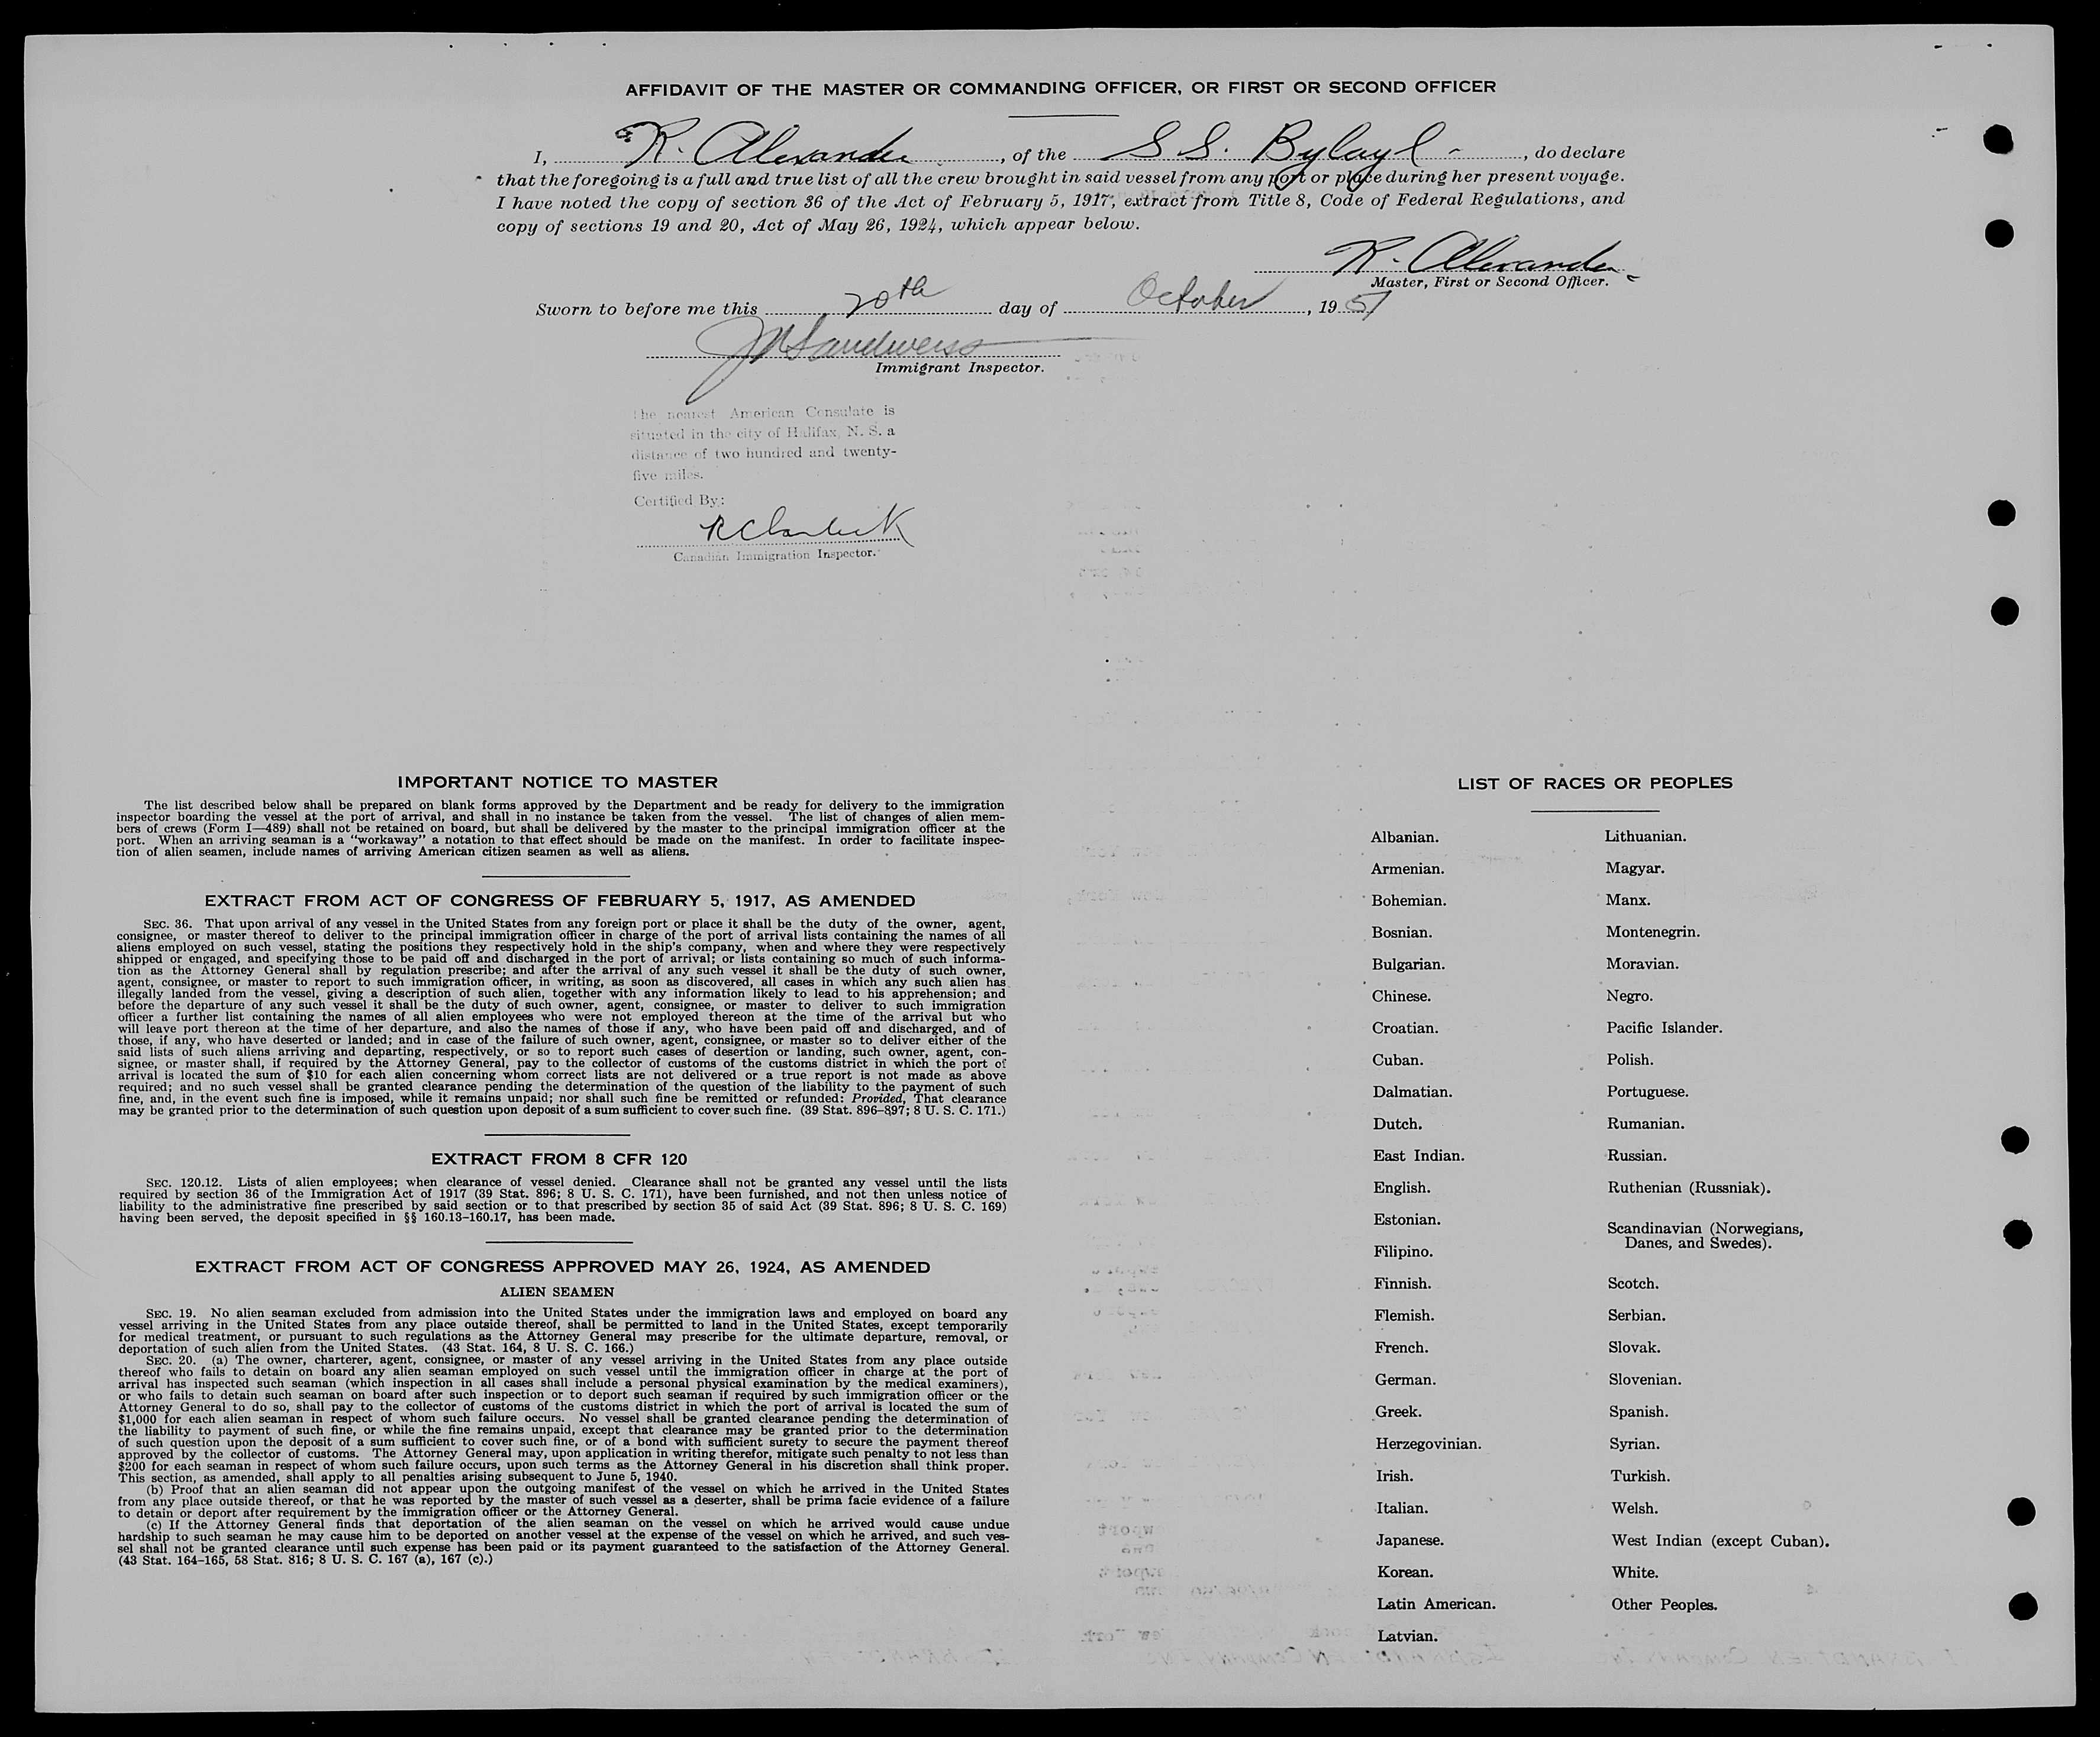 AFFIDAVIT OF THE MASTER OR COMMANDING OFFICER, OR FIRST OR SECOND OFFICER
I, R. Alexander, of the S.S. , do declare
that the foregoing is a full and true list of all the crew brought in said vessel from any port or place during her present voyage.
I have noted the copy of section 36 of the Act of February 5, 1917, extract from Title 8, Code of Federal Regulations, and
copy of sections 19 and 20, Act of May 26, 1924, which appear below.
R. Alexander
Master, First or Second Officer.
Sworn to before me this 20th day of October, 1951
Sandweiss
Immigrant Inspector.
The nearest American Consulate is
situated in the city of Halifax, N. S. a
distance of two hundred and twenty-
five miles.
Certified By:
Canadian Immigration Inspector.
IMPORTANT NOTICE TO MASTER
The list described below shall be prepared on blank forms approved by the Department and be ready for delivery to the immigration
inspector boarding the vessel at the port of arrival, and shall in no instance be taken from the vessel. The list of changes of alien mem-
bers of crews (Form I—489) shall not be retained on board, but shall be delivered by the master to the principal immigration officer at the
port. When an arriving seaman is a "workaway" a notation to that effect should be made on the manifest. In order to facilitate inspec-
tion of alien seamen, include names of arriving American citizen seamen as well as aliens.
EXTRACT FROM ACT OF CONGRESS OF FEBRUARY 5, 1917, AS AMENDED
SEC. 36. That upon arrival of any vessel in the United States from any foreign port or place it shall be the duty of the owner, agent,
consignee, or master thereof to deliver to the principal immigration officer in charge of the port of arrival lists containing the names of all
aliens employed on such vessel, stating the positions they respectively hold in the ship's company, when and where they were respectively
shipped or engaged, and specifying those to be paid off and discharged in the port of arrival; or lists containing so much of such informa-
tion as the Attorney General shall by regulation prescribe; and after the arrival of any such vessel it shall be the duty of such owner,
agent, consignee, or master to report to such immigration officer, in writing, as soon as discovered, all cases in which any such alien has
illegally landed from the vessel, giving a description of such alien, together with any information likely to lead to his apprehension; and
before the departure of any such vessel it shall be the duty of such owner, agent, consignee, or master to deliver to such immigration
officer a further list containing the names of all alien employees who were not employed thereon at the time of the arrival but who
will leave port thereon at the time of her departure, and also the names of those if any, who have been paid off and discharged, and of
those, if any, who have deserted or landed; and in case of the failure of such owner, agent, consignee, or master so to deliver either of the
said lists of such aliens arriving and departing, respectively, or so to report such cases of desertion or landing, such owner, agent, con-
signee, or master shall, if required by the Attorney General, pay to the collector of customs of the customs district in which the port of
arrival is located the sum of $10 for each alien concerning whom correct lists are not delivered or a true report is not made as above
required; and no such vessel shall be granted clearance pending the determination of the question of the liability to the payment of such
fine, and, in the event such fine is imposed, while it remains unpaid; nor shall such fine be remitted or refunded: Provided, That clearance
may be granted prior to the determination of such question upon deposit of a sum sufficient to cover such fine. (39 Stat. 896–897; 8 U. S. C. 171.)
EXTRACT FROM 8 CFR 120
SEC. 120.12. Lists of alien employees; when clearance of vessel denied. Clearance shall not be granted any vessel until the lists
required by section 36 of the Immigration Act of 1917 (39 Stat. 896; 8 U. S. C. 171), have been furnished, and not then unless notice of
liability to the administrative fine prescribed by said section or to that prescribed by section 35 of said Act (39 Stat. 896; 8 U. S. C. 169)
having been served, the deposit specified in §§ 160.13–160.17, has been made.
EXTRACT FROM ACT OF CONGRESS APPROVED MAY 26, 1924, AS AMENDED
ALIEN SEAMEN
SEC. 19. No alien seaman excluded from admission into the United States under the immigration laws and employed on board any
vessel arriving in the United States from any place outside thereof, shall be permitted to land in the United States, except temporarily
for medical treatment, or pursuant to such regulations as the Attorney General may prescribe for the ultimate departure, removal, or
deportation of such alien from the United States. (43 Stat. 164, 8 U. S. C. 166.)
SEC. 20. (a) The owner, charterer, agent, consignee, or master of any vessel arriving in the United States from any place outside
thereof who fails to detain on board any alien seaman employed on such vessel until the immigration officer in charge at the port of
arrival has inspected such seaman (which inspection in all cases shall include a personal physical examination by the medical examiners),
or who fails to detain such seaman on board after such inspection or to deport such seaman if required by such immigration officer or the
Attorney General to do so, shall pay to the collector of customs of the customs district in which the port of arrival is located the sum of
$1,000 for each alien seaman in respect of whom such failure occurs. No vessel shall be granted clearance pending the determination of
the liability to payment of such fine, or while the fine remains unpaid, except that clearance may be granted prior to the determination
of such question upon the deposit of a sum sufficient to cover such fine, or of a bond with sufficient surety to secure the payment thereof
approved by the collector of customs. The Attorney General may, upon application in writing therefor, mitigate such penalty to not less than
$200 for each seaman in respect of whom such failure occurs, upon such terms as the Attorney General in his discretion shall think proper.
This section, as amended, shall apply to all penalties arising subsequent to June 5, 1940.
(b) Proof that an alien seaman did not appear upon the outgoing manifest of the vessel on which he arrived in the United States
from any place outside thereof, or that he was reported by the master of such vessel as a deserter, shall be prima facie evidence of a failure
to detain or deport after requirement by the immigration officer or the Attorney General.
(c) If the Attorney General finds that deportation of the alien seaman on the vessel on which he arrived would cause undue
hardship to such seaman he may cause him to be deported on another vessel at the expense of the vessel on which he arrived, and such ves-
sel shall not be granted clearance until such expense has been paid or its payment guaranteed to the satisfaction of the Attorney General.
(43 Stat. 164–165, 58 Stat. 816; 8 U. S. C. 167 (a), 167 (c).)
LIST OF RACES OR PEOPLES
Albanian.
Armenian.
Bohemian.
Bosnian.
Bulgarian.
Chinese.
Croatian.
Cuban.
Dalmatian.
Dutch.
East Indian.
English.
Estonian.
Filipino.
Finnish.
Flemish.
French.
German.
Greek.
Herzegovinian.
Irish.
Italian.
Japanese.
Korean.
Latin American.
Latvian.
Lithuanian.
Magyar.
Manx.
Montenegrin.
Moravian.
Negro.
Pacific Islander.
Polish.
Portuguese.
Rumanian.
Russian.
Ruthenian (Russniak).
Scandinavian (Norwegians,
Danes, and Swedes).
Scotch.
Serbian.
Slovak.
Slovenian.
Spanish.
Syrian.
Turkish.
Welsh.
West Indian (except Cuban).
White.
Other Peoples.